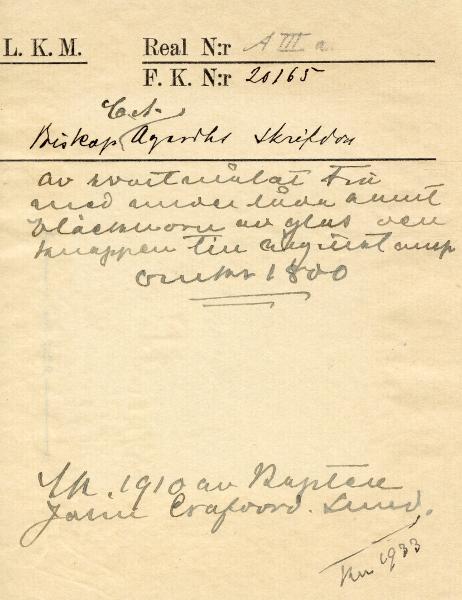 L. K. M. Real N:r A III a
F. K. N:r 20165
C. A.
Biskop Agardhs skrifdon
av svartmålat trä
med under låda samt
bläckhorn av glas och
knappen till
omkr 1800
Sk. 1910 av Kapten
Jamil Crafoord. Lund.
1933